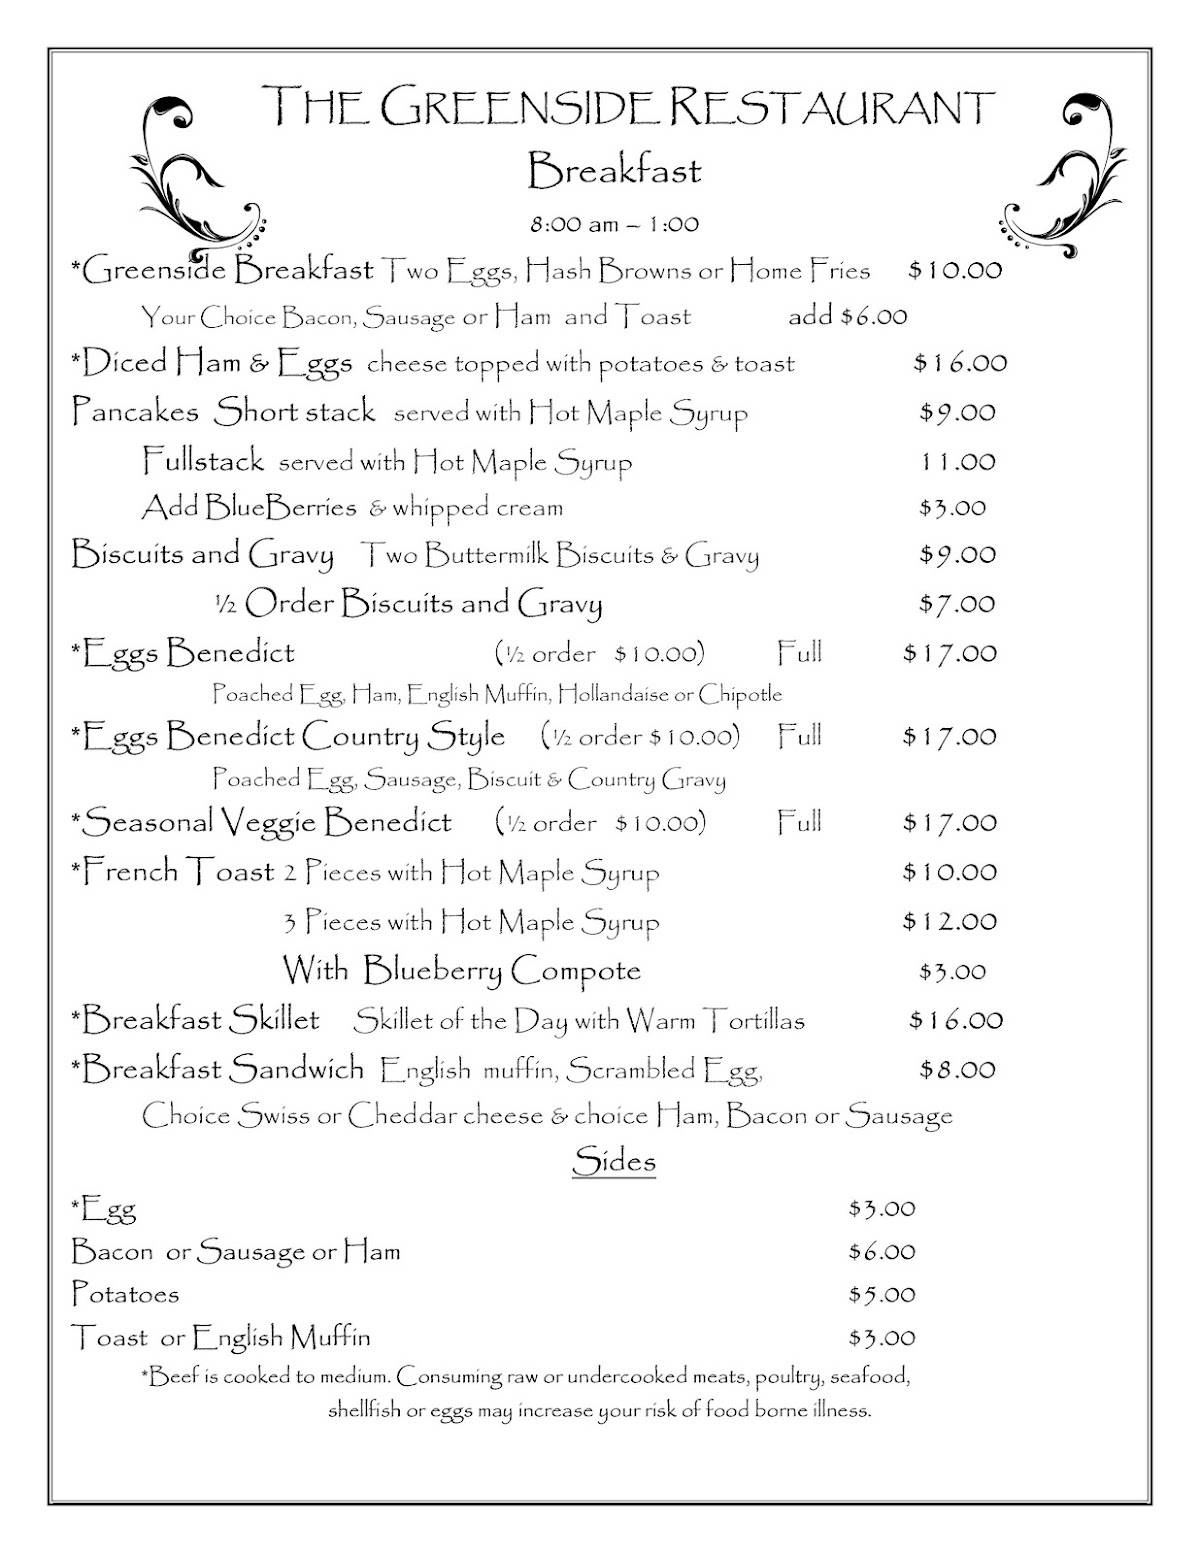 THE GREENSIDE RESTAURANT
Breakfast
8:00 am – 1:00
*Greenside Breakfast Two Eggs, Hash Browns or Home Fries $10.00
Your Choice Bacon, Sausage or Ham and Toast add $6.00
*Diced Ham & Eggs cheese topped with potatoes & toast $16.00
Pancakes Short stack served with Hot Maple Syrup $9.00
Fullstack served with Hot Maple Syrup 11.00
Add BlueBerries & whipped cream $3.00
Biscuits and Gravy Two Buttermilk Biscuits & Gravy $9.00
½ Order Biscuits and Gravy $7.00
*Eggs Benedict (½ order $10.00) Full $17.00
Poached Egg, Ham, English Muffin, Hollandaise or Chipotle
*Eggs Benedict Country Style (½ order $10.00) Full $17.00
Poached Egg, Sausage, Biscuit & Country Gravy
*Seasonal Veggie Benedict (½ order $10.00) Full $17.00
*French Toast 2 Pieces with Hot Maple Syrup $10.00
3 Pieces with Hot Maple Syrup $12.00
With Blueberry Compote $3.00
*Breakfast Skillet Skillet of the Day with Warm Tortillas $16.00
*Breakfast Sandwich English muffin, Scrambled Egg, $8.00
Choice Swiss or Cheddar cheese & choice Ham, Bacon or Sausage
Sides
*Egg $3.00
Bacon or Sausage or Ham $6.00
Potatoes $5.00
Toast or English Muffin $3.00
*Beef is cooked to medium. Consuming raw or undercooked meats, poultry, seafood,
shellfish or eggs may increase your risk of food borne illness.